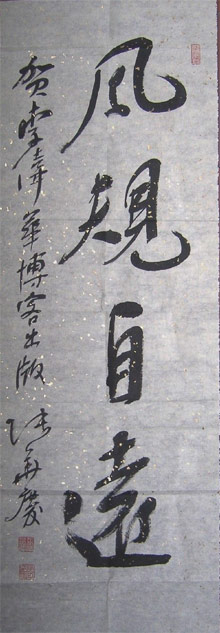 風規自遠
賀李偉華博客出版
張華慶